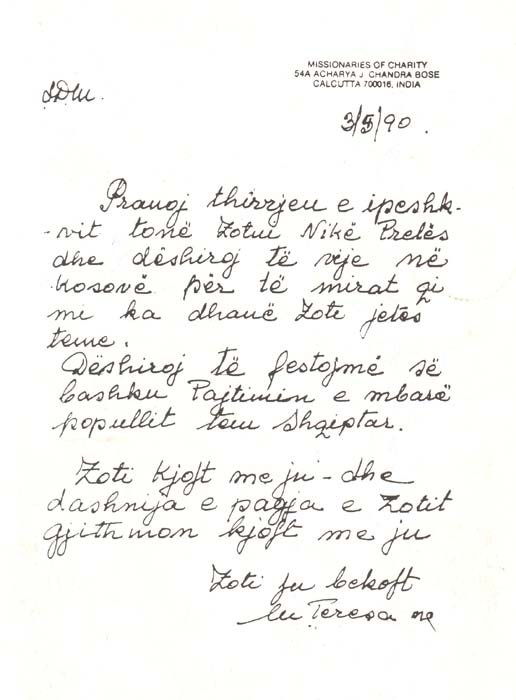 MISSIONARIES OF CHARITY
54A ACHARYA J. CHANDRA BOSE
CALCUTTA 700016, INDIA
LDM.
3/5/90.
Pranoj thirrjeu e ipeshk-
-vit tonë Zotni Nikë Prelës
dhe dëshiroj të vije në
Kosovë për të mirat qi
mi ka dhanë Zoti jetës
teme.
Dëshiroj të festojmë së
bashku Pajtimin e mbarë
popullit tem Shqiptar.
Zoti Kjoft me ju - dhe
dashnija e pagja e Zotit
gjithmon kjoft me ju
Zoti ju bekoft
M Teresa mc